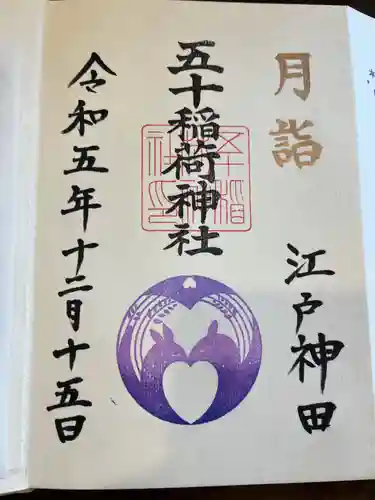 月詣
江戸神田
五十稲荷神社
令和五年十二月十五日